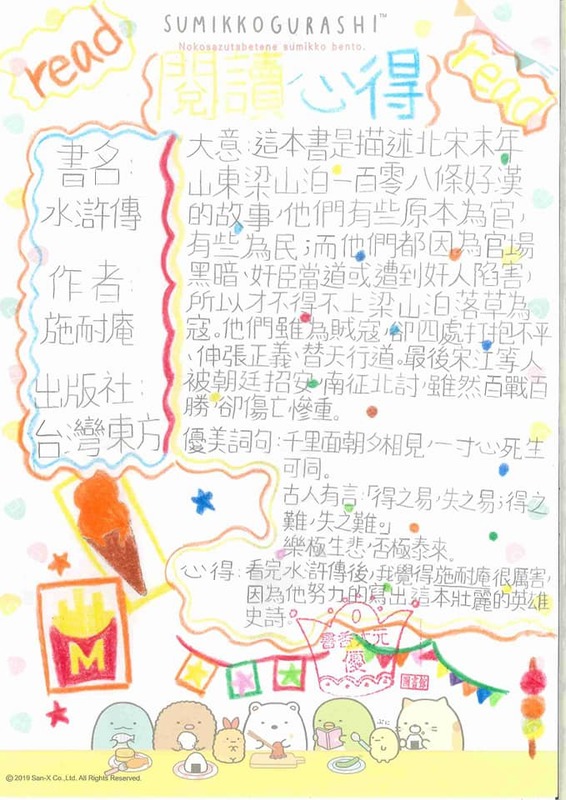 SUMIKKOGURASHI™
Nokosazutabetene sumikko bento.
read
閱讀心得
read
書名:
水滸傳
作者:
施耐庵
出版社:
台灣東方
大意:這本書是描述北宋末年
山東梁山泊一百零八條好漢
的故事,他們有些原本為官,
有些為民;而他們都因為官場
黑暗、奸臣當道或遭到奸人陷害,
所以才不得不上梁山泊落草為
寇。他們雖為賊寇,卻四處打抱不平
、伸張正義、替天行道。最後宋江等人
被朝廷招安,南征北討,雖然百戰百
勝,卻傷亡慘重。
優美詞句:千里面朝夕相見,一寸心死生
可同。
古人有言:「得之易,失之易;得之
難,失之難。」
樂極生悲,否極泰來。
心得:看完水滸傳後,我覺得施耐庵很厲害,
因為他努力的寫出這本壯麗的英雄
史詩。
書香狀元
優
M
ぷに
© 2019 San-X Co.,Ltd. All Rights Reserved.